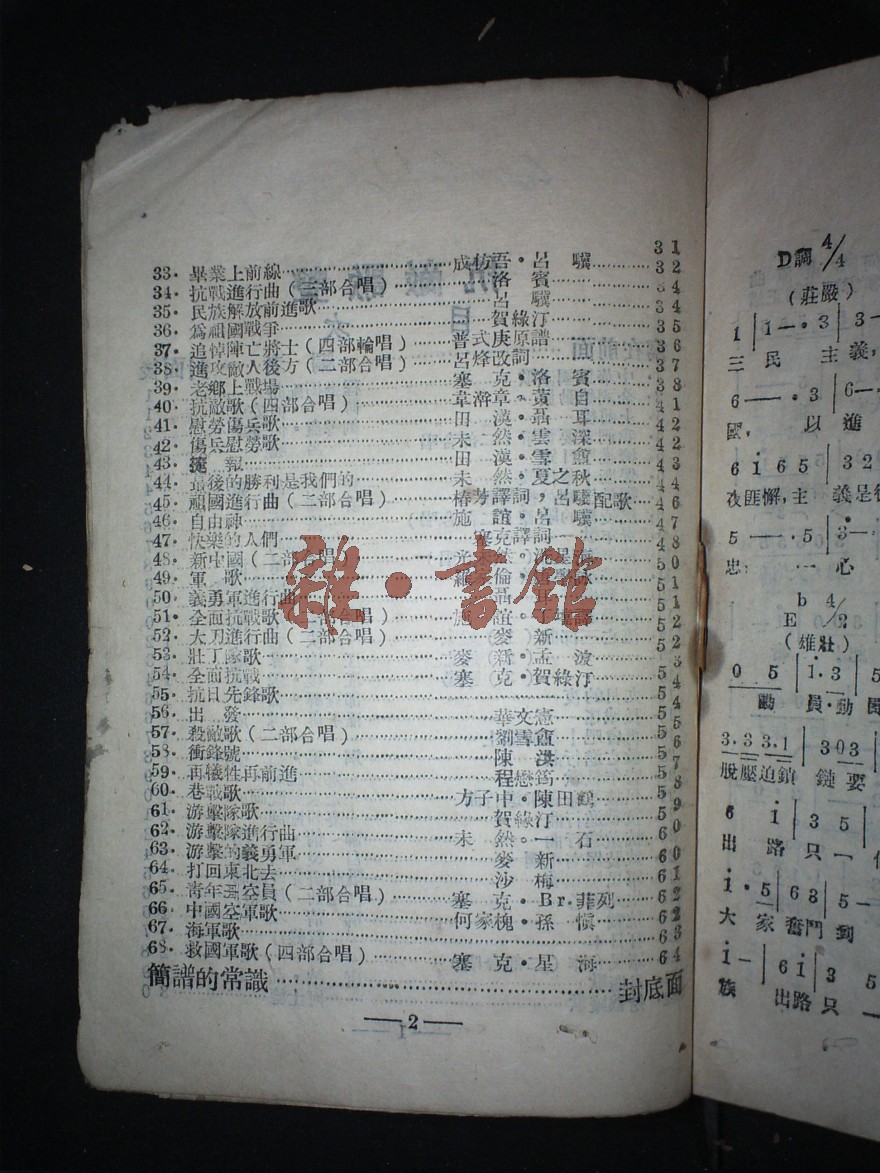 33. 畢業上前線 成仿吾。呂驥 31
34. 抗戰進行曲(三部合唱) 洛賓 32
35. 民族解放前進歌 呂驥 34
36. 爲祖國戰爭 賀綠汀 34
37. 追悼陣亡將士(四部輪唱) 普式庚原譜 35
38. 進攻敵人後方(二部合唱) 呂烽改詞 36
39. 老鄉上戰場 塞克。洛賓 37
40. 抗敵歌(四部合唱) 韋瀚章。黃自 38
41. 慰勞傷兵歌 田漢。聶耳 41
42. 傷兵慰勞歌 未然。雲深 42
43. 捷報 田漢。雪盦 42
44. 最後的勝利是我們的 未然。夏之秋 43
45. 祖國進行曲(二部合唱) 椿芳譯詞，呂驥配歌 44
46. 自由神 施誼。呂驥 46
47. 快樂的人們 克譯詞 47
48. 新中國(二部合唱) 48
49. 軍歌 50
50. 義勇軍進行曲 51
51. 全面抗戰歌 合唱) 誼 51
52. 大刀進行曲(二部合唱) 麥新 52
53. 壯丁隊歌 麥新。孟波 52
54. 全面抗戰 塞克。賀綠汀 53
55. 抗日先鋒歌 54
56. 出發 華文憲 54
57. 殺敵歌(二部合唱) 劉雪盦 55
58. 衝鋒號 陳洪 56
59. 再犧牲再前進 程懋筠 57
60. 巷戰歌 方子中。陳田鶴 58
61. 游擊隊歌 賀綠汀 59
62. 游擊隊進行曲 未然。一石 60
63. 游擊的義勇軍 麥新 60
64. 打回東北去 沙梅 61
65. 青年航空員(二部合唱) 塞克。Br.菲列 62
66. 中國空軍歌 何家槐。孫慎 62
67. 海軍歌 63
68. 救國軍歌(四部合唱) 塞克。星海 64
簡譜的常識 封底面
—2—
雜·書館
D調 4/4
(莊嚴)
1 | 1—·3 | 3—
三 民 主 義，
6——·3 | 6—
國， 以 進
6 i 6 5 | 3 2
夜匪懈，主 義是
5——·5 | 3—
忠， 一 心
bE 4/2
(雄壯)
0 5 | i·3 | 5
動 員·動
3.3 3.1 | 3 0 3
脫壓迫鎖 鏈 要
6 i | 3 5 |
出 路 只 一
i·5 | 6 3 | 5—
大 家 奮鬥 到
i— | 6 i | 3
族 出路 只